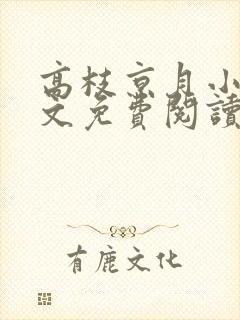 高枝京月小
文免費閱讀
有鹿文化